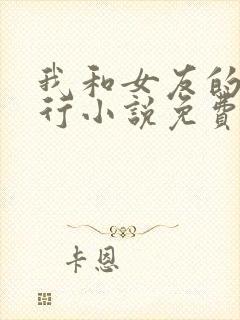 我和女友的
行小說免費
卡恩